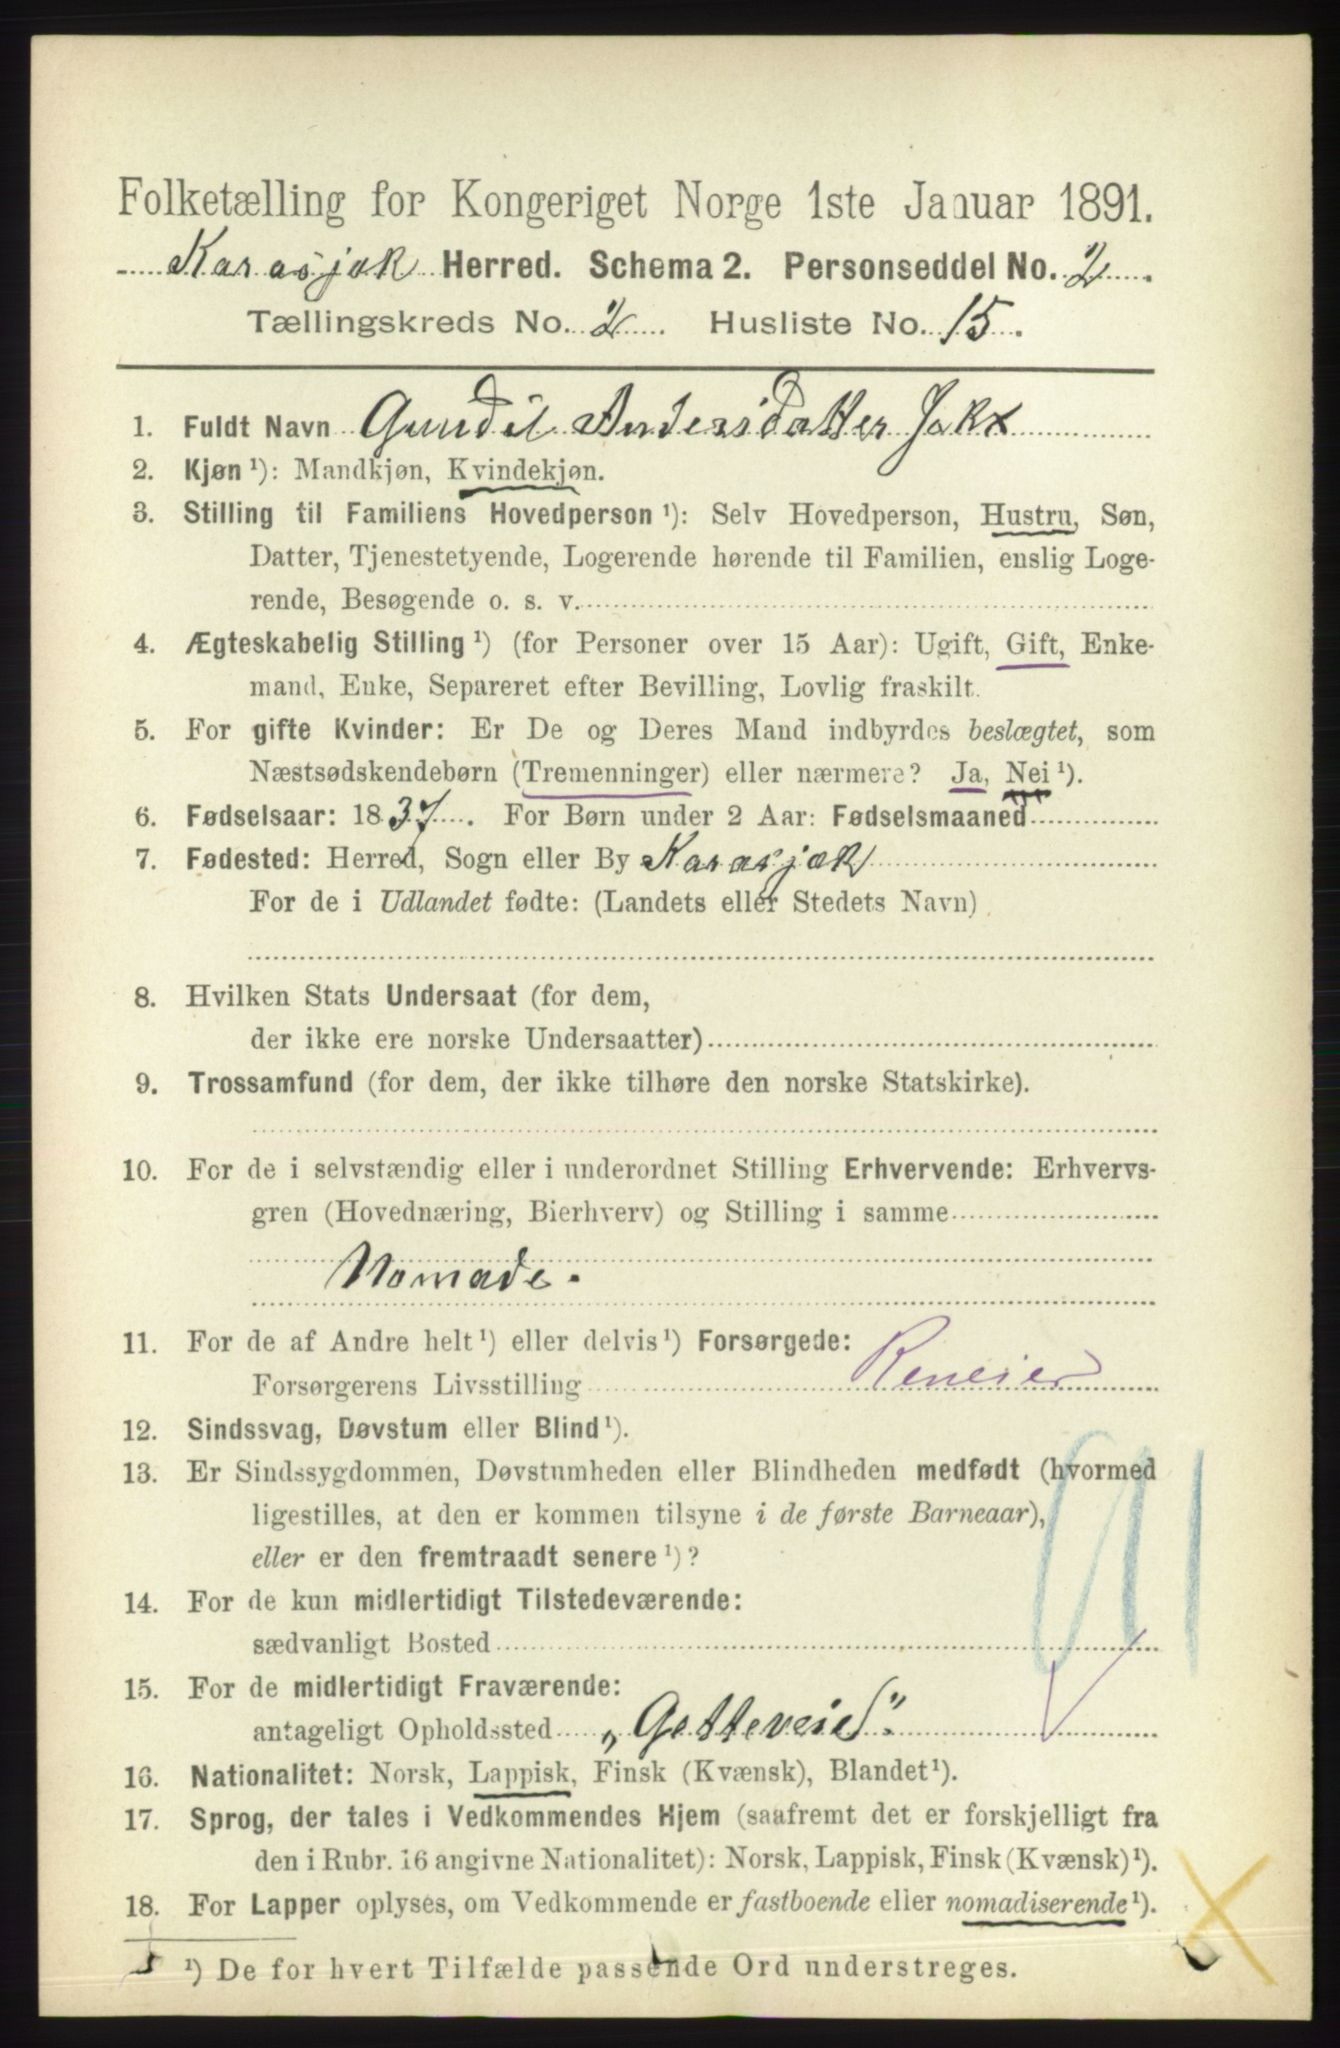 Folketælling for Kongeriget Norge 1ste Januar 1891.
Karasjok Herred. Schema 2. Personseddel No. 2.
Tællingskreds No. 2 Husliste No. 15.
1. Fuldt Navn Gundil Andersdatter
2. Kjøn ¹): Mandkjøn, Kvindekjøn.
3. Stilling til Familiens Hovedperson ¹): Selv Hovedperson, Hustru, Søn,
Datter, Tjenestetyende, Logerende hørende til Familien, enslig Loge-
rende, Besøgende o. s. v.
4. Ægteskabelig Stilling ¹) (for Personer over 15 Aar): Ugift, Gift, Enke-
mand, Enke, Separeret efter Bevilling, Lovlig fraskilt.
5. For gifte Kvinder: Er De og Deres Mand indbyrdes beslægtet, som
Næstsødskendebørn (Tremenninger) eller nærmere? Ja, Nei ¹).
6. Fødselsaar: 1837. For Børn under 2 Aar: Fødselsmaaned
7. Fødested: Herred, Sogn eller By Karasjok
For de i Udlandet fødte: (Landets eller Stedets Navn)
8. Hvilken Stats Undersaat (for dem,
der ikke ere norske Undersaatter)
9. Trossamfund (for dem, der ikke tilhøre den norske Statskirke).
10. For de i selvstændig eller i underordnet Stilling Erhvervende: Erhvervs-
gren (Hovednæring, Bierhverv) og Stilling i samme
Nomade.
11. For de af Andre helt ¹) eller delvis ¹) Forsørgede:
Forsørgerens Livsstilling Reneier
12. Sindssvag, Døvstum eller Blind ¹).
13. Er Sindssygdommen, Døvstumheden eller Blindheden medfødt (hvormed
ligestilles, at den er kommen tilsyne i de første Barneaar),
eller er den fremtraadt senere ¹)?
14. For de kun midlertidigt Tilstedeværende:
sædvanligt Bosted
15. For de midlertidigt Fraværende:
antageligt Opholdssted
16. Nationalitet: Norsk, Lappisk, Finsk (Kvænsk), Blandet ¹).
17. Sprog, der tales i Vedkommendes Hjem (saafremt det er forskjelligt fra
den i Rubr. 16 angivne Nationalitet): Norsk, Lappisk, Finsk (Kvænsk) ¹).
18. For Lapper oplyses, om Vedkommende er fastboende eller nomadiserende ¹).
¹) De for hvert Tilfælde passende Ord understreges.